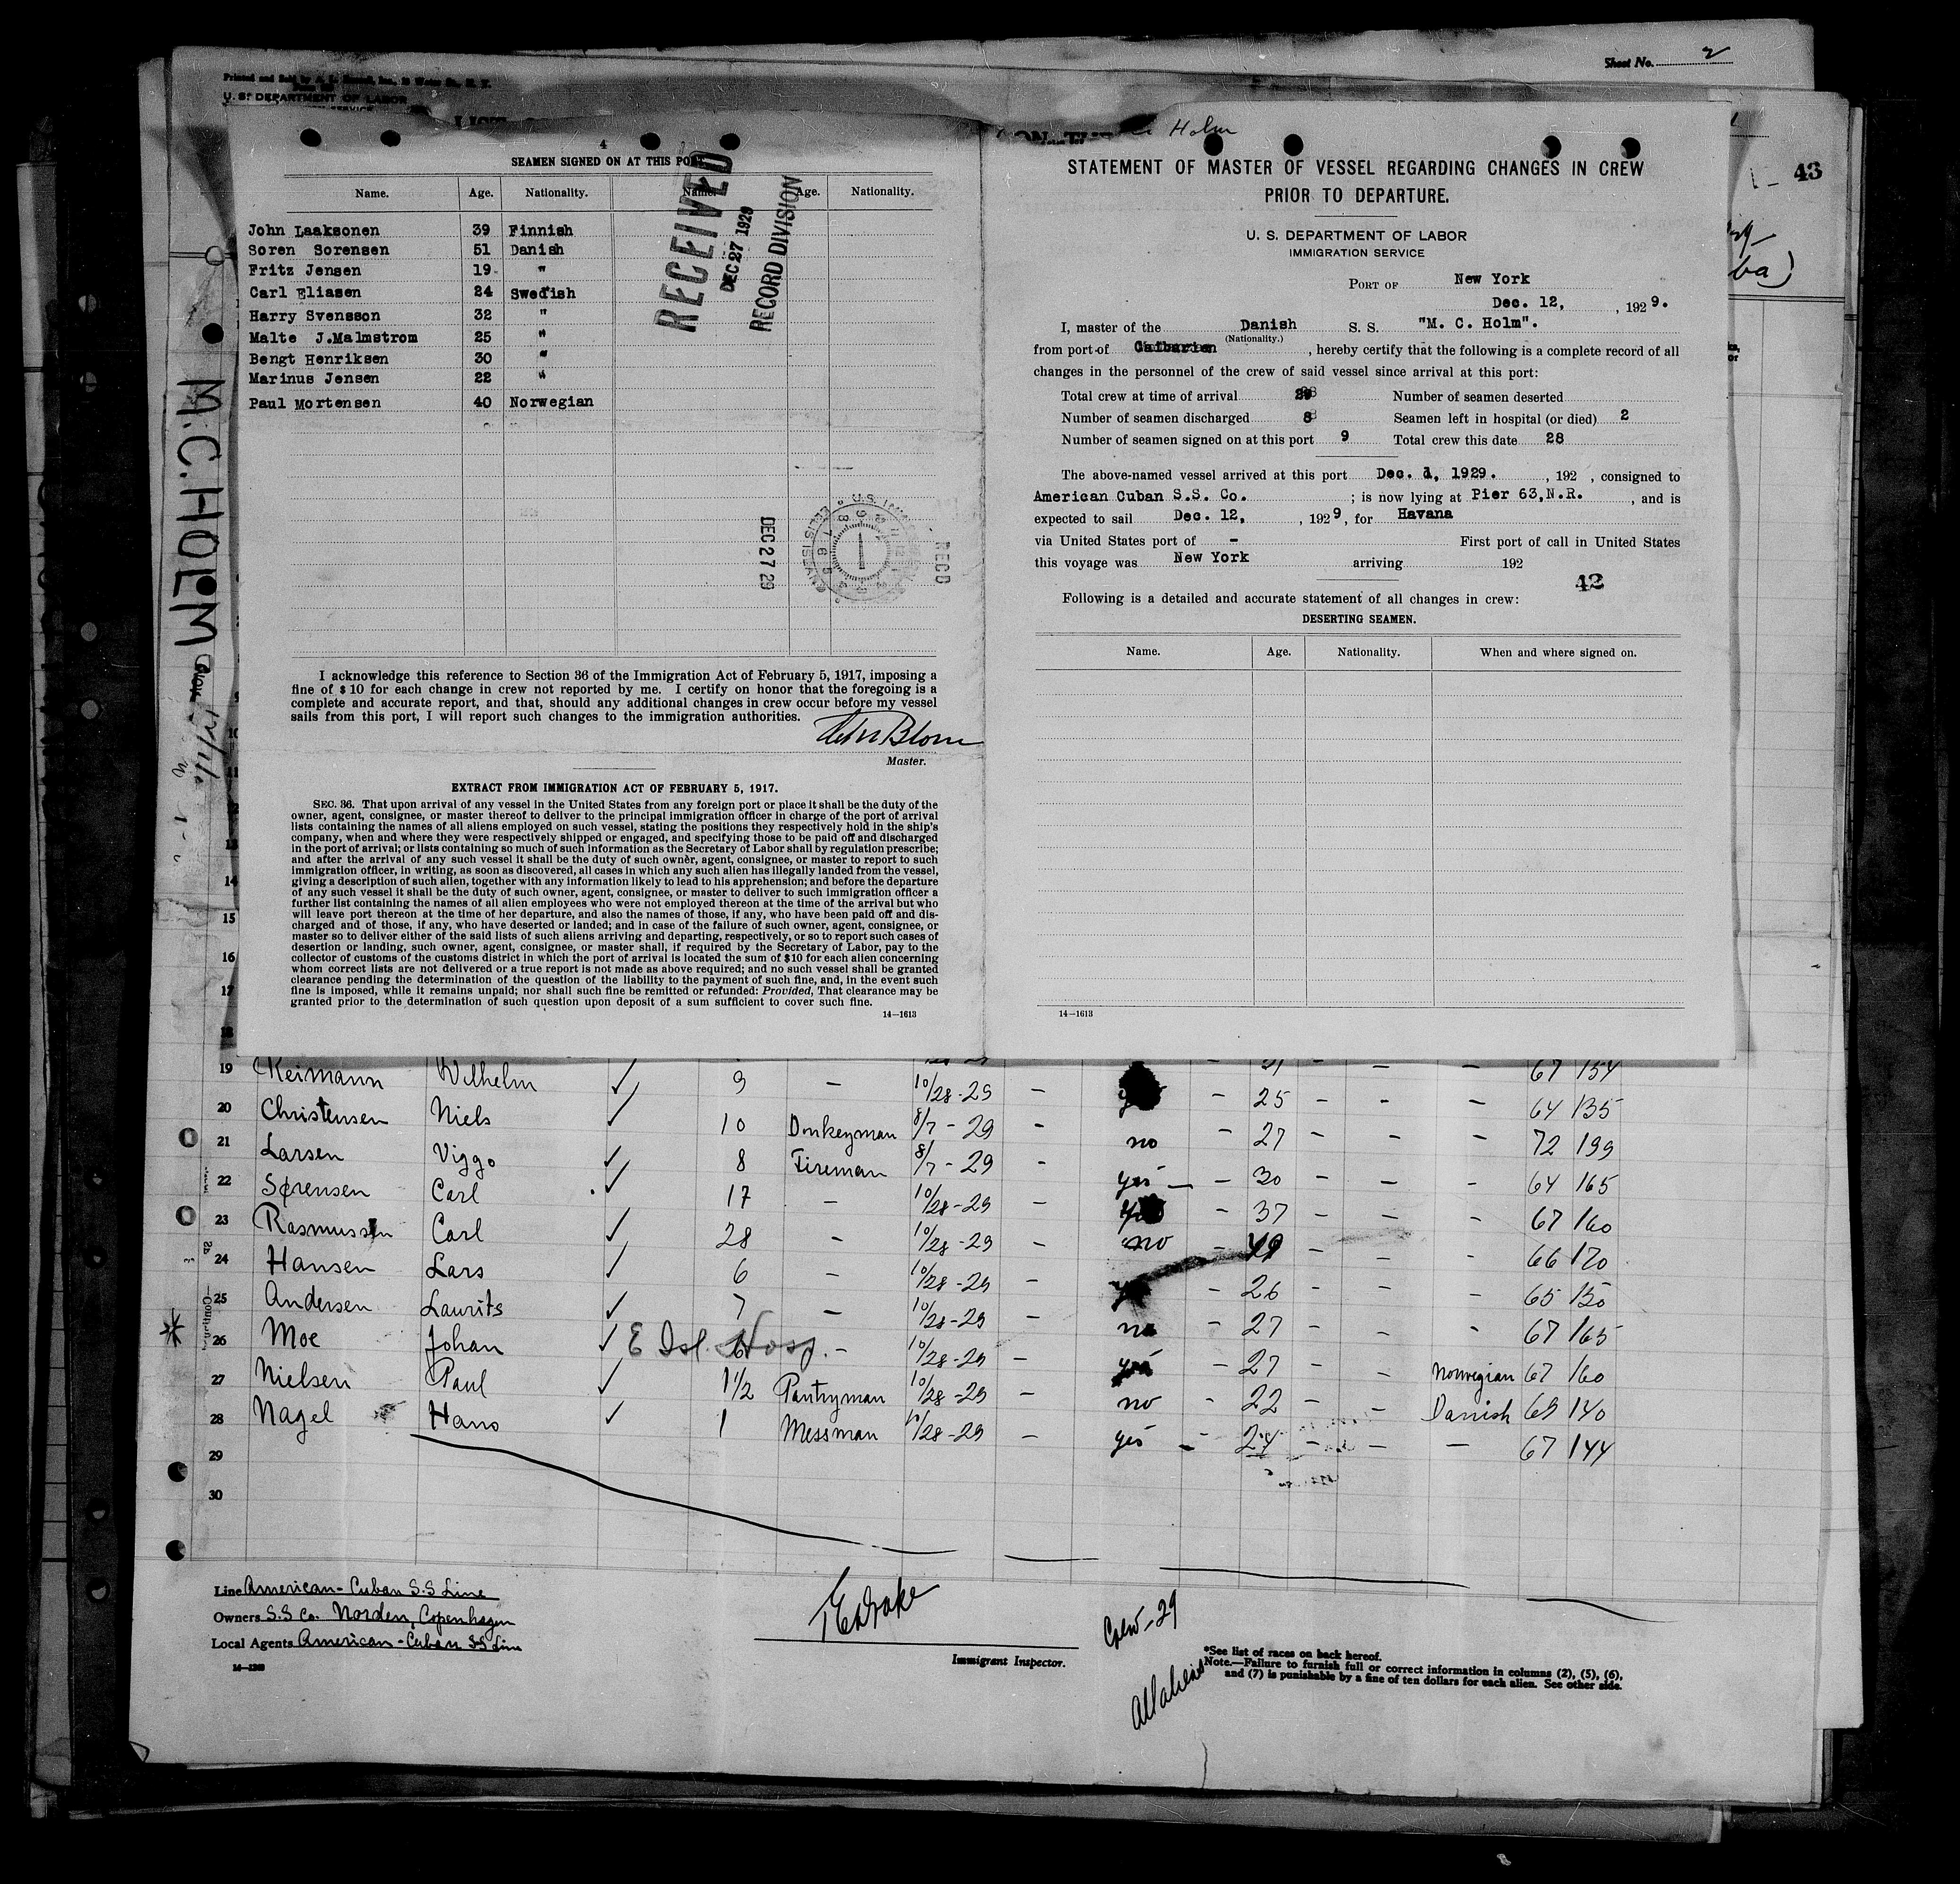 Sheet No. 2
Printed and Sold by
U. S. DEPARTMENT OF LABOR
43
M.C. HOLM
4
SEAMEN SIGNED ON AT THIS PORT
Name. Age. Nationality. Name. Age. Nationality.
John Laaksonen 39 Finnish
Soren Sorensen 51 Danish
Fritz Jensen 19 "
Carl Eliasen 24 Swedish
Harry Svensson 32 "
Malte J.Malmstrom 25 "
Bengt Henriksen 30 "
Marinus Jensen 22 "
Paul Mortensen 40 Norwegian
RECEIVED
DEC 27 1929
RECORD DIVISION
DEC 27 29
RECD
I acknowledge this reference to Section 36 of the Immigration Act of February 5, 1917, imposing a
fine of $10 for each change in crew not reported by me. I certify on honor that the foregoing is a
complete and accurate report, and that, should any additional changes in crew occur before my vessel
sails from this port, I will report such changes to the immigration authorities.
Master.
EXTRACT FROM IMMIGRATION ACT OF FEBRUARY 5, 1917.
SEC. 36. That upon arrival of any vessel in the United States from any foreign port or place it shall be the duty of the
owner, agent, consignee, or master thereof to deliver to the principal immigration officer in charge of the port of arrival
lists containing the names of all aliens employed on such vessel, stating the positions they respectively hold in the ship's
company, when and where they were respectively shipped or engaged, and specifying those to be paid off and discharged
in the port of arrival; or lists containing so much of such information as the Secretary of Labor shall by regulation prescribe;
and after the arrival of any such vessel it shall be the duty of such owner, agent, consignee, or master to report to such
immigration officer, in writing, as soon as discovered, all cases in which any such alien has illegally landed from the vessel,
giving a description of such alien, together with any information likely to lead to his apprehension; and before the departure
of any such vessel it shall be the duty of such owner, agent, consignee, or master to deliver to such immigration officer a
further list containing the names of all alien employees who were not employed thereon at the time of the arrival but who
will leave port thereon at the time of her departure, and also the names of those, if any, who have been paid off and dis-
charged and of those, if any, who have deserted or landed; and in case of the failure of such owner, agent, consignee, or
master so to deliver either of the said lists of such aliens arriving and departing, respectively, or so to report such cases of
desertion or landing, such owner, agent, consignee, or master shall, if required by the Secretary of Labor, pay to the
collector of customs of the customs district in which the port of arrival is located the sum of $10 for each alien concerning
whom correct lists are not delivered or a true report is not made as above required; and no such vessel shall be granted
clearance pending the determination of the question of the liability to the payment of such fine, and, in the event such
fine is imposed, while it remains unpaid; nor shall such fine be remitted or refunded: Provided, That clearance may be
granted prior to the determination of such question upon deposit of a sum sufficient to cover such fine.
14—1613
Holm
STATEMENT OF MASTER OF VESSEL REGARDING CHANGES IN CREW
PRIOR TO DEPARTURE.
U. S. DEPARTMENT OF LABOR
IMMIGRATION SERVICE
PORT OF New York
Dec. 12, , 192 9.
I, master of the Danish S. S. "M. C. Holm".
(Nationality.)
from port of Caibarien , hereby certify that the following is a complete record of all
changes in the personnel of the crew of said vessel since arrival at this port:
Total crew at time of arrival Number of seamen deserted
Number of seamen discharged 8 Seamen left in hospital (or died) 2
Number of seamen signed on at this port 9 Total crew this date 28
The above-named vessel arrived at this port Dec. 1, 1929. , 192 , consigned to
American Cuban S.S. Co. ; is now lying at Pier 63,N.R. , and is
expected to sail Dec. 12, , 192 9, for Havana
via United States port of - First port of call in United States
this voyage was New York arriving 192
42
Following is a detailed and accurate statement of all changes in crew:
DESERTING SEAMEN.
Name. Age. Nationality. When and where signed on.
14—1613
14
15
16
17
18
19 Reimann Wilhelm ✓ 9 — 10/28-29 — 25 - - — 64 135
20 Christensen Niels ✓ 10 Donkeyman 8/7 - 29 - no - 27 - - - 72 199
21 Larsen Viggo ✓ 8 Fireman 8/7 - 29 - yes — - 30 - — - 64 165
22 Sørensen Carl ✓ 17 — 10/28-29 — yes - 37 - - - 67 160
23 Rasmussen Carl ✓ 28 — 10/28-29 — no - 49 - — - 66 170
24 Hansen Lars ✓ 6 — 10/28-29 — - 26 - - - 65 150
25 Andersen Laurits ✓ 7 — 10/28-29 — no - 27 - - - 67 165
26 Moe Johan ✓ E Isl. Hosp. 6 - 10/28-29 — yes - 27 - - Norwegian 67 160
27 Nielsen Paul ✓ 1 1/2 Pantryman 10/28-29 — no - 22 - - Danish 69 140
28 Nagel Hans ✓ 1 Messman 10/28-29 — yes - 24 - — — 67 144
29
30
Line American-Cuban S.S Line
Owners S.S Co. Norden, Copenhagen
Local Agents American-Cuban SS Line
14—1263
Immigrant Inspector.
Crew-29
All aliens
*See list of races on back hereof.
Note.—Failure to furnish full or correct information in columns (2), (5), (6),
and (7) is punishable by a fine of ten dollars for each alien. See other side.